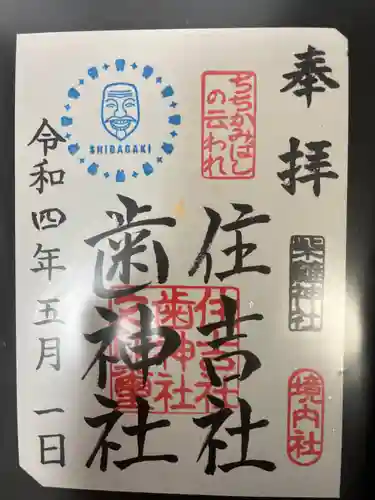 奉拝
柴籬神社
境内社
ちちかみはし
の云われ
住吉社
歯神社
住吉社
歯神社
SHIBAGAKI
令和四年五月一日